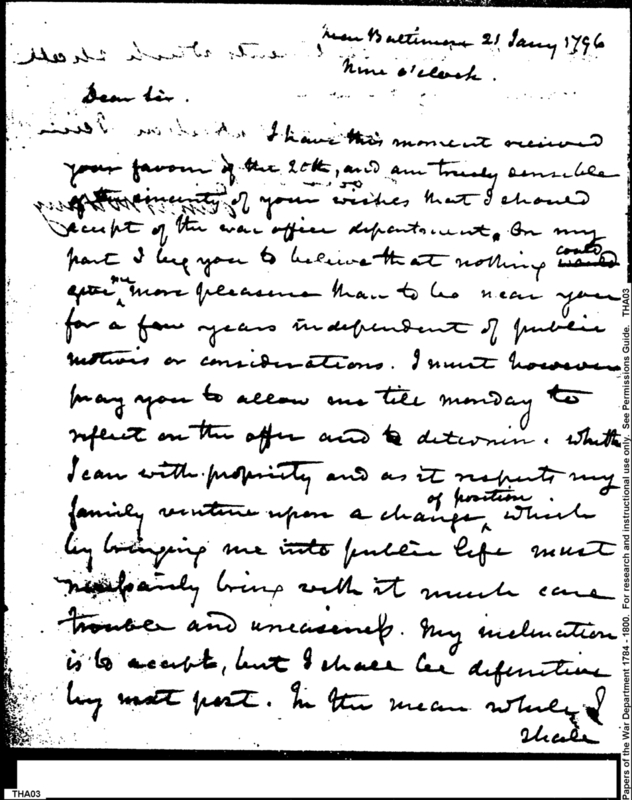 near Baltimore 21 Jany 1796
Nine o'clock.
Dear Sir.
I have this moment received
your favour of the 20th, and am truly sensible
of the sincerity of your wishes that I should
accept of the war office department. On my
part I beg you to believe that nothing would could
give me more pleasure than to be near you
for a few years independent of public
motives or considerations. I must however
pray you to allow me till monday to
reflect on the offer and to determin. whether
I can with propriety and as it respects my
family venture upon a change of position, which
by bringing me into public life must
necessarily bring with it much care
trouble and uneasiness. My inclination
is to accept, but I shall be definitive
by next post. In the mean while I
shall
THA03
Papers of the War Department 1784 - 1800. For research and instructional use only. See Permissions Guide. THA03